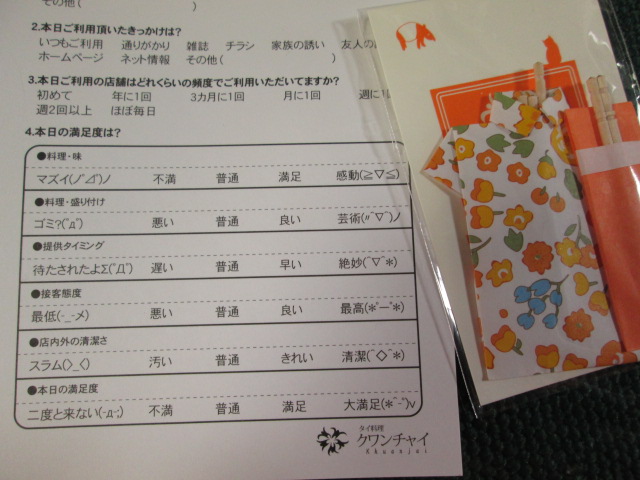 その他(                    )
2.本日ご利用頂いたきっかけは?
いつもご利用 通りがかり 雑誌 チラシ 家族の誘い 友人の
ホームページ ネット情報 その他(                    )
3.本日ご利用の店舗はどれくらいの頻度でご利用いただいてますか?
初めて 年に1回 3カ月に1回 月に1回 週に1
週2回以上 ほぼ毎日
4.本日の満足度は?
●料理・味
マズイ(ノ゚⊿゚)ノ 不満 普通 満足 感動(≧▽≦)
●料理・盛り付け
ゴミ?(゚д゚) 悪い 普通 良い 芸術(〃▽〃)ノ
●提供タイミング
待たされたよΣ(゚Д゚) 遅い 普通 早い 絶妙(*^▽^*)
●接客態度
最低(-_-メ) 悪い 普通 良い 最高(*^ー^*)
●店内外の清潔さ
スラム(>_<) 汚い 普通 きれい 清潔(^◇^*)
●本日の満足度
二度と来ない(-д-;) 不満 普通 満足 大満足(*^-^)v
タイ料理
クワンチャイ
Khuanjai